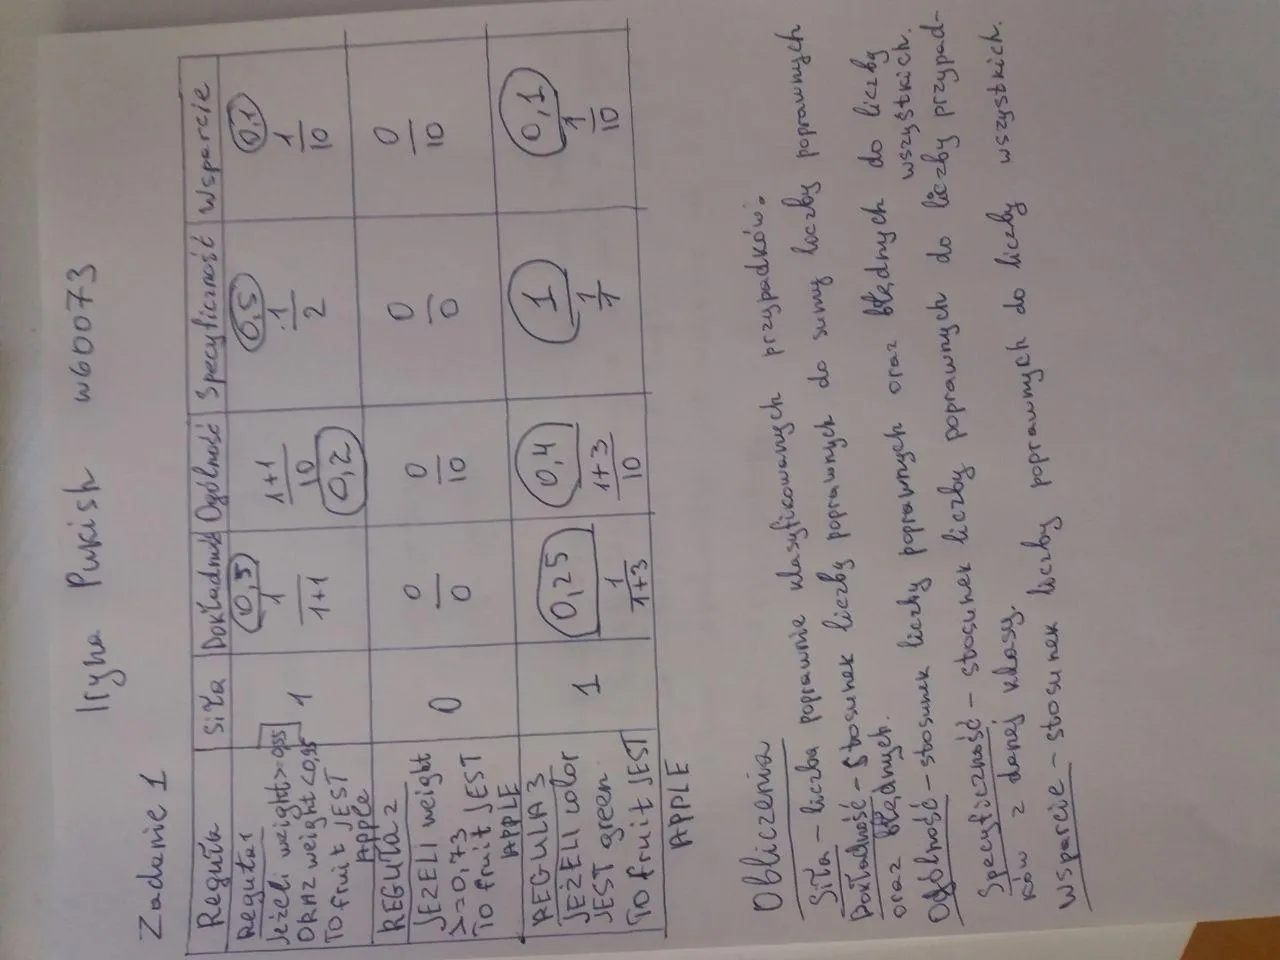 Iryna Pukish w60073
Zadanie 1
Reguła Siła Dokładność Ogólność Specyficzność Wsparcie
Reguła 1
Jeżeli weight > 0,55
ORAZ weight < 0,95
TO fruit JEST
Apple
1
0,5
1
1+1
1+1
10
0,2
0,5
1
2
0,1
1
10
REGUŁA 2
JEŻELI weight
>= 0,73
TO fruit JEST
APPLE
0
0
0
0
10
0
0
0
10
REGUŁA 3
JEŻELI color
JEST green
TO fruit JEST
APPLE
1
0,25
1
1+3
0,4
1+3
10
1
1
1
0,1
1
10
Obliczenia
Siła – liczba poprawnie klasyfikowanych przypadków.
Dokładność – stosunek liczby poprawnych do sumy liczby poprawnych
oraz błędnych.
Ogólność – stosunek liczby poprawnych oraz błędnych do liczby
wszystkich.
Specyficzność – stosunek liczby poprawnych do liczby przypad-
ków z danej klasy.
Wsparcie – stosunek liczby poprawnych do liczby wszystkich.